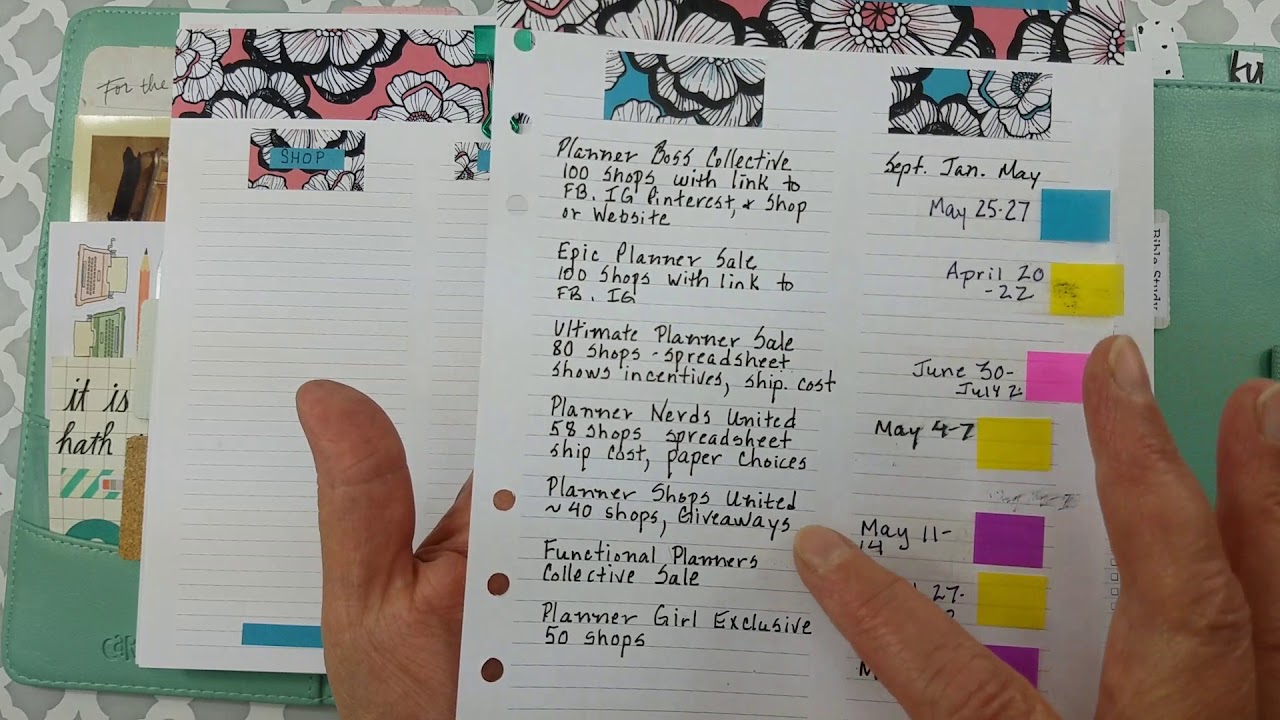 For the
SHOP
it is
hath
Planner Boss Collective
100 Shops with link to
FB. IG Pinterest, & Shop
or Website
Sept. Jan. May
May 25-27
Epic Planner Sale
100 Shops with link to
FB. IG
April 20
-22
Ultimate Planner Sale
80 Shops - spreadsheet
shows incentives, ship. cost
June 30-
July 2
Planner Nerds United
58 Shops spreadsheet
ship cost, paper choices
May 4-7
Planner Shops United
~ 40 shops, Giveaways
May 11-
14
Functional Planners
Collective Sale
27-
Planner Girl Exclusive
50 shops
Bible Study